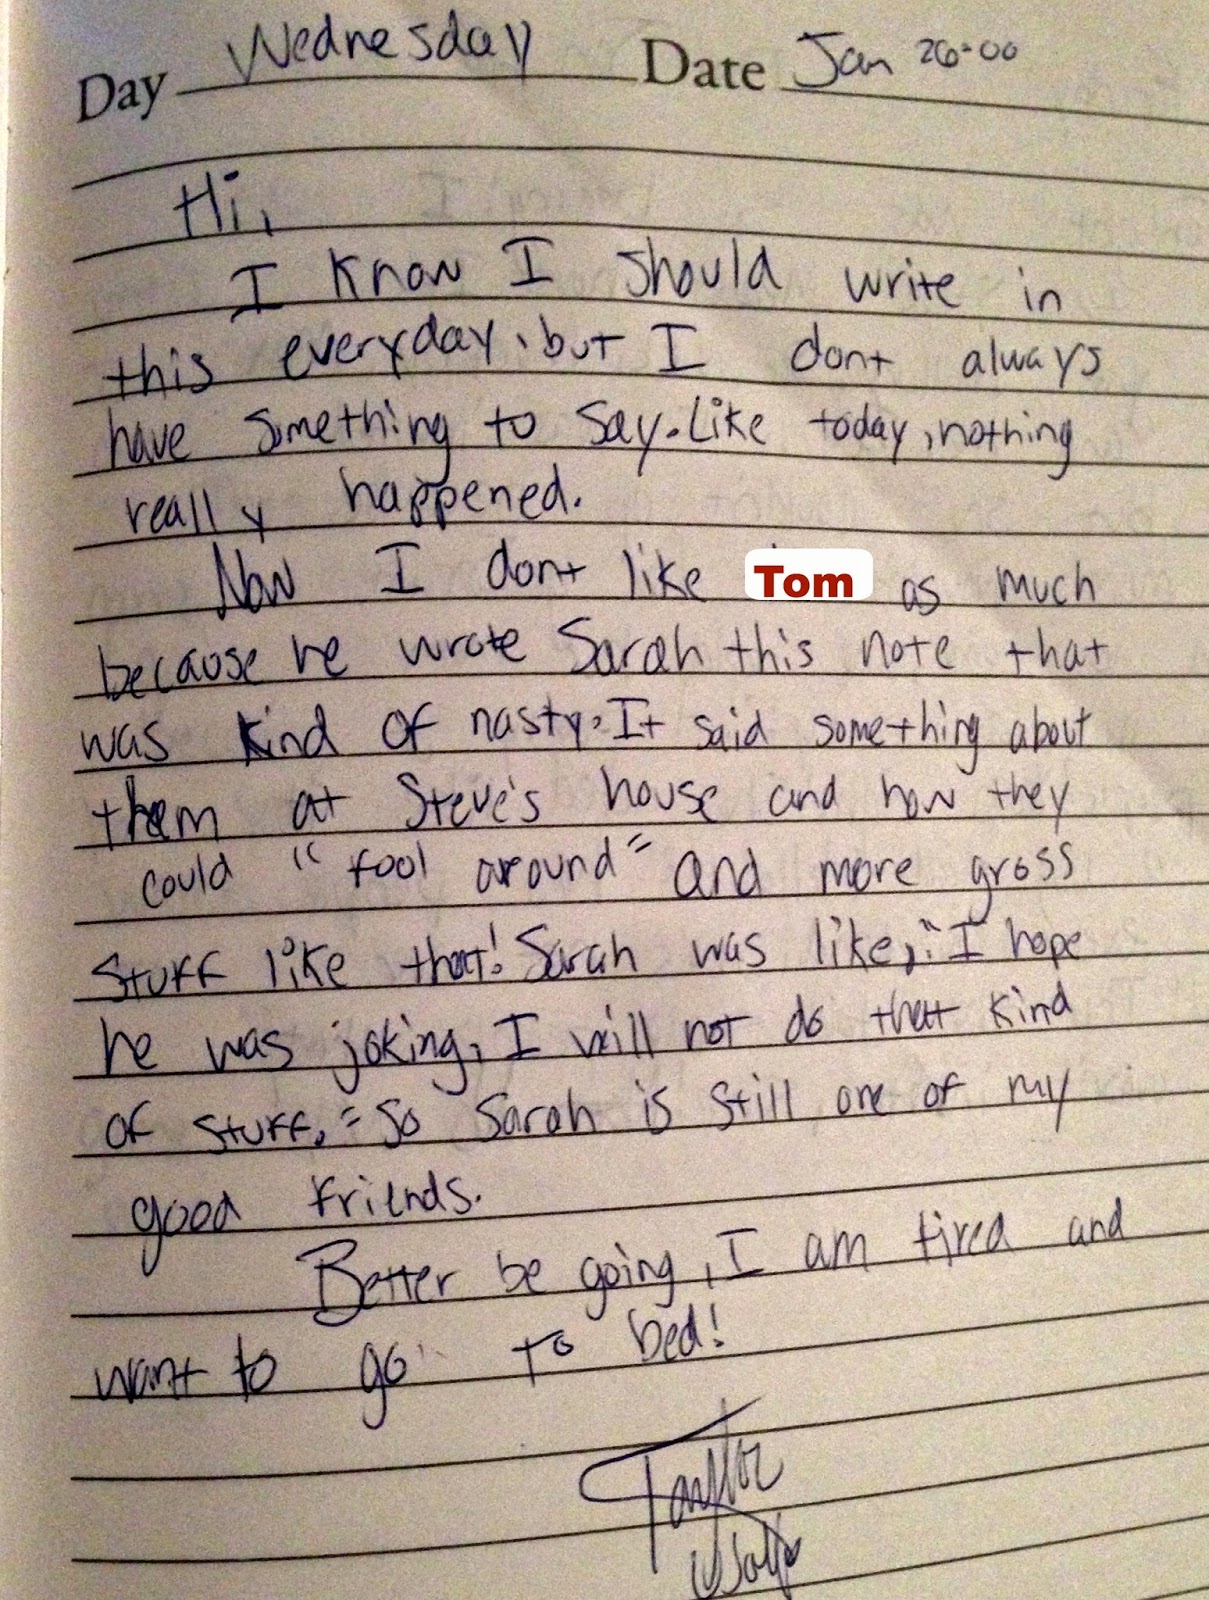 Day Wednesday Date Jan 26-00
Hi,
I know I should write in
this everyday, but I dont always
have something to say. Like today, nothing
really happened.
Now I dont like Tom as much
because he wrote Sarah this note that
was kind of nasty. It said something about
them at Steve's house and how they
could "fool around" and more gross
stuff like that! Sarah was like, "I hope
he was joking, I will not do that kind
of stuff," So Sarah is still one of my
good friends.
Better be going, I am tired and
want to go to bed!
Taylor